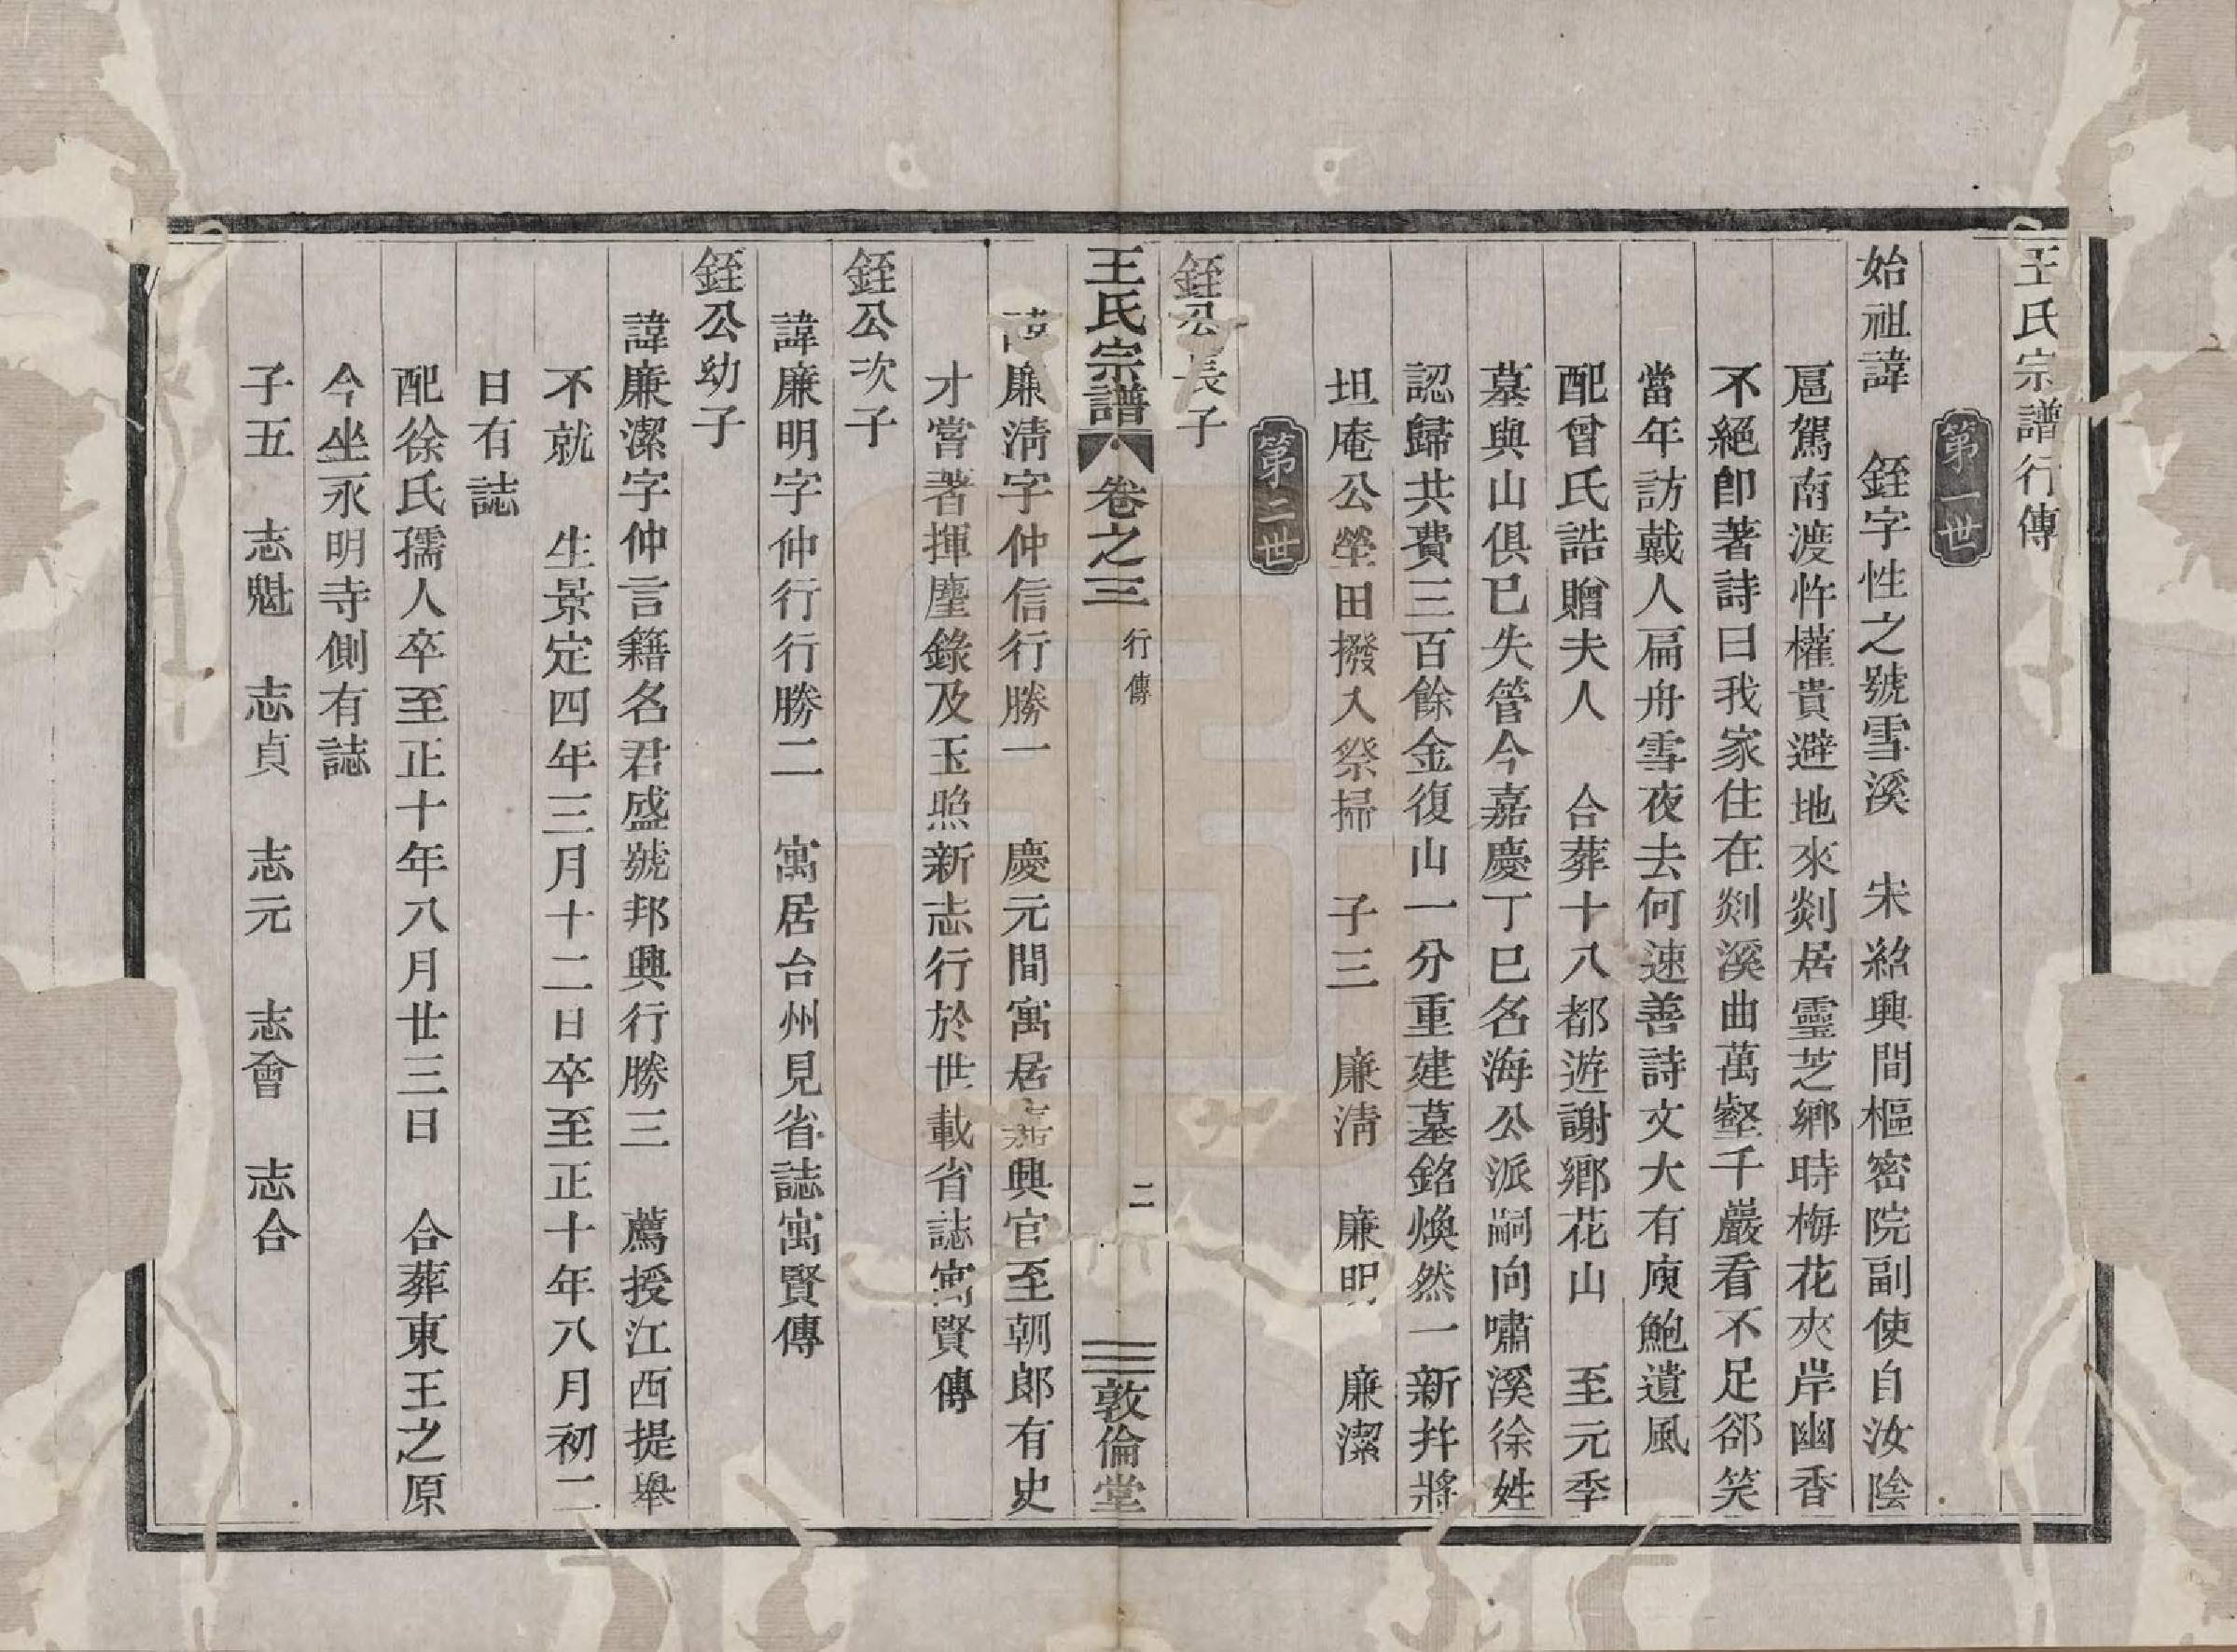 王氏宗譜行傳
第一世
始祖諱　銍字性之號雪溪　宋紹興間樞密院副使自汝陰
扈駕南渡忤權貴避地來剡居靈芝鄉時梅花夾岸幽香
不絕卽著詩曰我家住在剡溪曲萬壑千巖看不足郤笑
當年訪戴人扁舟雪夜去何速善詩文大有庾鮑遺風
配曾氏誥贈夫人　合葬十八都遊謝鄉花山　至元季
墓與山俱已失管今嘉慶丁巳名海公派嗣向嘯溪徐姓
認歸共費三百餘金復山一分重建墓銘煥然一新幷將
坦庵公塋田撥入祭掃　子三　廉淸　廉明　廉潔
第二世
銍公長子
王氏宗譜　卷之三　行傳　二　敦倫堂
諱廉淸字仲信行勝一　慶元間寓居嘉興官至朝郎有史
才嘗著揮麈錄及玉照新志行於世載省誌寓賢傳
銍公次子
諱廉明字仲行行勝二　寓居台州見省誌寓賢傳
銍公幼子
諱廉潔字仲言籍名君盛號邦興行勝三　薦授江西提舉
不就　生景定四年三月十二日卒至正十年八月初二
日有誌
配徐氏孺人卒至正十年八月廿三日　合葬東王之原
今坐永明寺側有誌
子五　志魁　志貞　志元　志會　志合